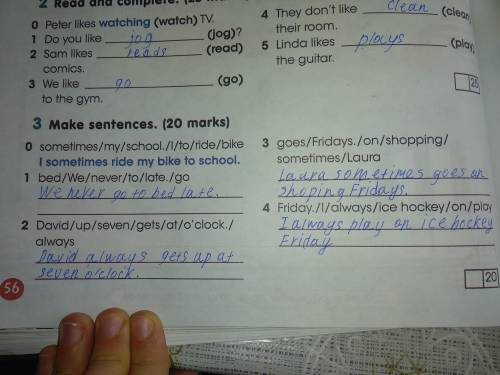 2 Read and complete. (25 marks)
0 Peter likes watching (watch) TV.
1 Do you like jog (jog)?
2 Sam likes reads (read)
comics.
3 We like go (go)
to the gym.
4 They don't like clean (clean)
their room.
5 Linda likes plays (play)
the guitar.
25
3 Make sentences. (20 marks)
0 sometimes/my/school./I/to/ride/bike
I sometimes ride my bike to school.
1 bed/We/never/to/late./go
We never go to bed late.
2 David/up/seven/gets/at/o'clock./
always
David always gets up at
seven o'clock.
3 goes/Fridays./on/shopping/
sometimes/Laura
Laura sometimes goes on
shoping Fridays.
4 Friday./I/always/ice hockey/on/play
I always play on ice hockey
Friday
20
56